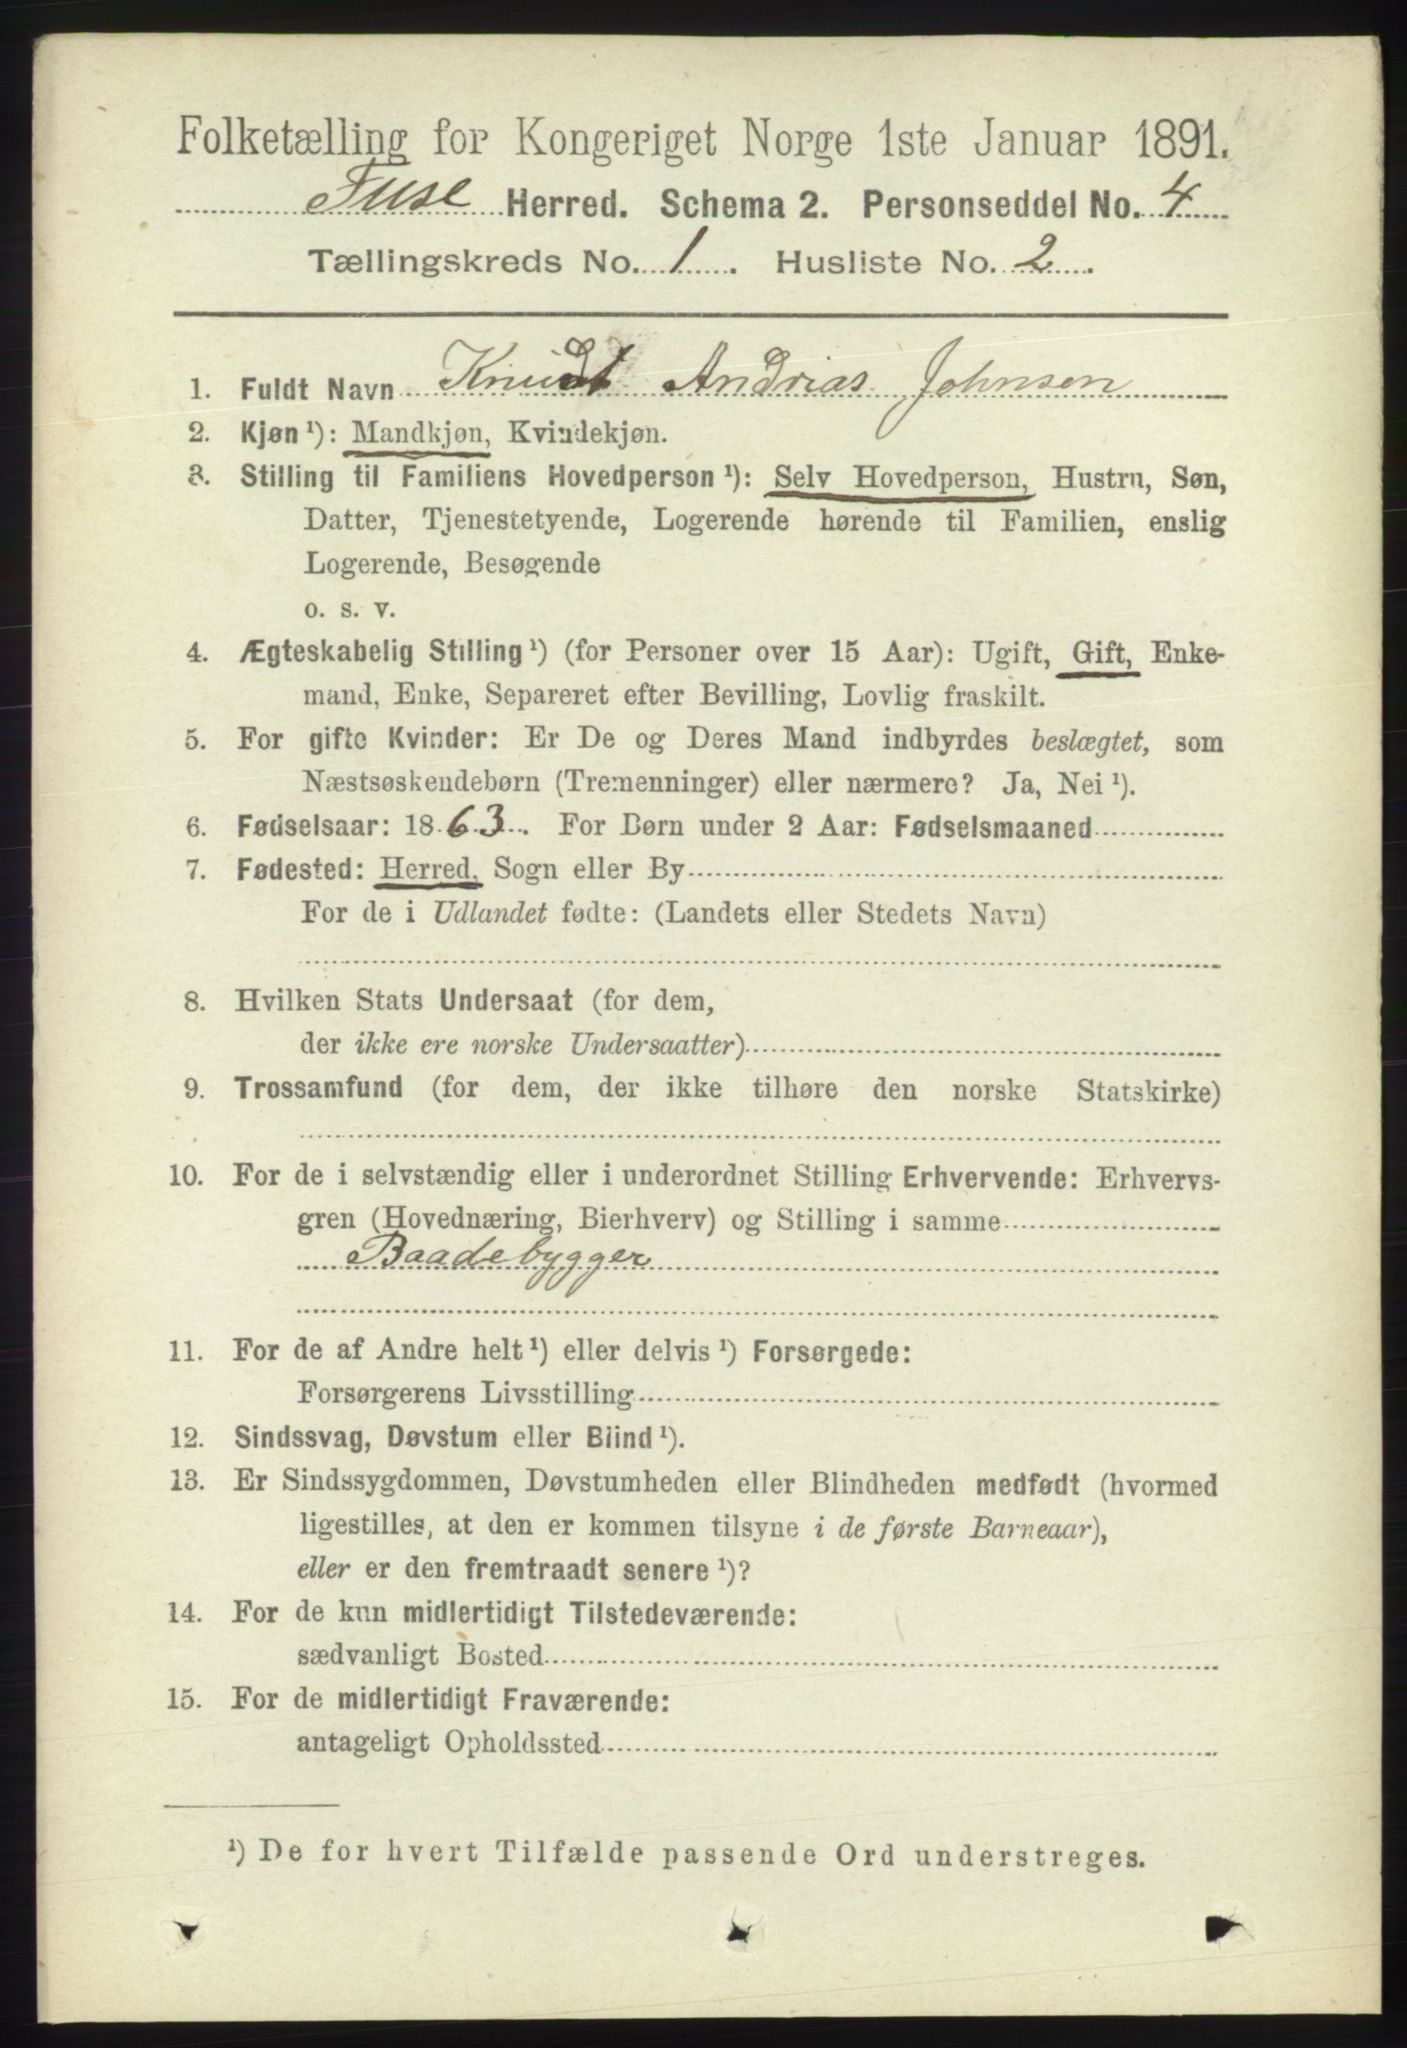 Folketælling for Kongeriget Norge 1ste Januar 1891.
Fuse Herred. Schema 2. Personseddel No. 4
Tællingskreds No. 1. Husliste No. 2.
1. Fuldt Navn Knudt Andrias Johnsen
2. Kjøn ¹): Mandkjøn, Kvindekjøn.
3. Stilling til Familiens Hovedperson ¹): Selv Hovedperson, Hustru, Søn,
Datter, Tjenestetyende, Logerende hørende til Familien, enslig
Logerende, Besøgende
o. s. v.
4. Ægteskabelig Stilling ¹) (for Personer over 15 Aar): Ugift, Gift, Enke-
mand, Enke, Separeret efter Bevilling, Lovlig fraskilt.
5. For gifte Kvinder: Er De og Deres Mand indbyrdes beslægtet, som
Næstsøskendebørn (Tremenninger) eller nærmere? Ja, Nei ¹).
6. Fødselsaar: 1863. For Børn under 2 Aar: Fødselsmaaned
7. Fødested: Herred, Sogn eller By
For de i Udlandet fødte: (Landets eller Stedets Navn)
8. Hvilken Stats Undersaat (for dem,
der ikke ere norske Undersaatter)
9. Trossamfund (for dem, der ikke tilhøre den norske Statskirke)
10. For de i selvstændig eller i underordnet Stilling Erhvervende: Erhvervs-
gren (Hovednæring, Bierhverv) og Stilling i samme
Baadebygger
11. For de af Andre helt ¹) eller delvis ¹) Forsørgede:
Forsørgerens Livsstilling
12. Sindssvag, Døvstum eller Blind ¹).
13. Er Sindssygdommen, Døvstumheden eller Blindheden medfødt (hvormed
ligestilles, at den er kommen tilsyne i de første Barneaar),
eller er den fremtraadt senere ¹)?
14. For de kun midlertidigt Tilstedeværende:
sædvanligt Bosted
15. For de midlertidigt Fraværende:
antageligt Opholdssted
¹) De for hvert Tilfælde passende Ord understreges.